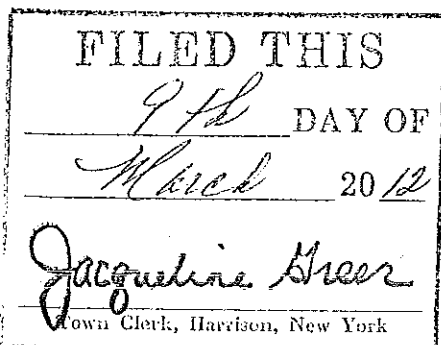 FILED THIS
9th DAY OF
March 2012
Jacqueline Greer
Town Clerk, Harrison, New York